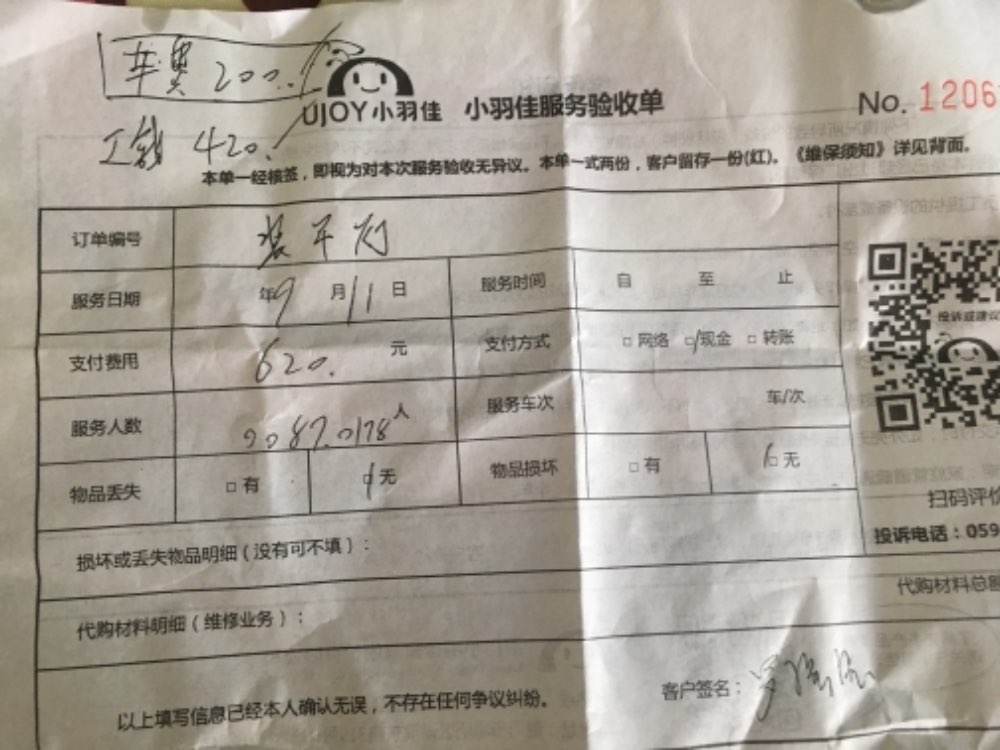 车费 200.
UJOY小羽佳 小羽佳服务验收单 No. 1206
工钱 420.
本单一经核签，即视为对本次服务验收无异议。本单一式两份，客户留存一份(红)。《维保须知》详见背面。
订单编号
服务日期 年9月11日 服务时间 自 至 止
投诉或建议
支付费用 620. 元 支付方式 □网络 □现金 □转账
服务人数 人 服务车次 车/次
物品丢失 □有 □无 物品损坏 □有 □无
扫码评价
损坏或丢失物品明细（没有可不填）： 投诉电话：059
代购材料明细（维修业务）： 代购材料总额
客户签名：
以上填写信息已经本人确认无误，不存在任何争议纠纷。